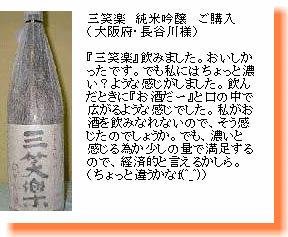 三笑楽　純米吟醸　ご購入
（大阪府・長谷川様）
『三笑楽』飲みました。おいしか
ったです。でも私にはちょっと濃
い？ような感じがしました。飲ん
だときに『お酒だー』と口の中で
広がるような感じでした。私がお
酒を飲みなれないので、そう感
じたのでしょうか。でも、濃いと
感じる為か少しの量で満足する
ので、経済的と言えるかしら。
（ちょっと違うかなf(^_^)）
三笑楽